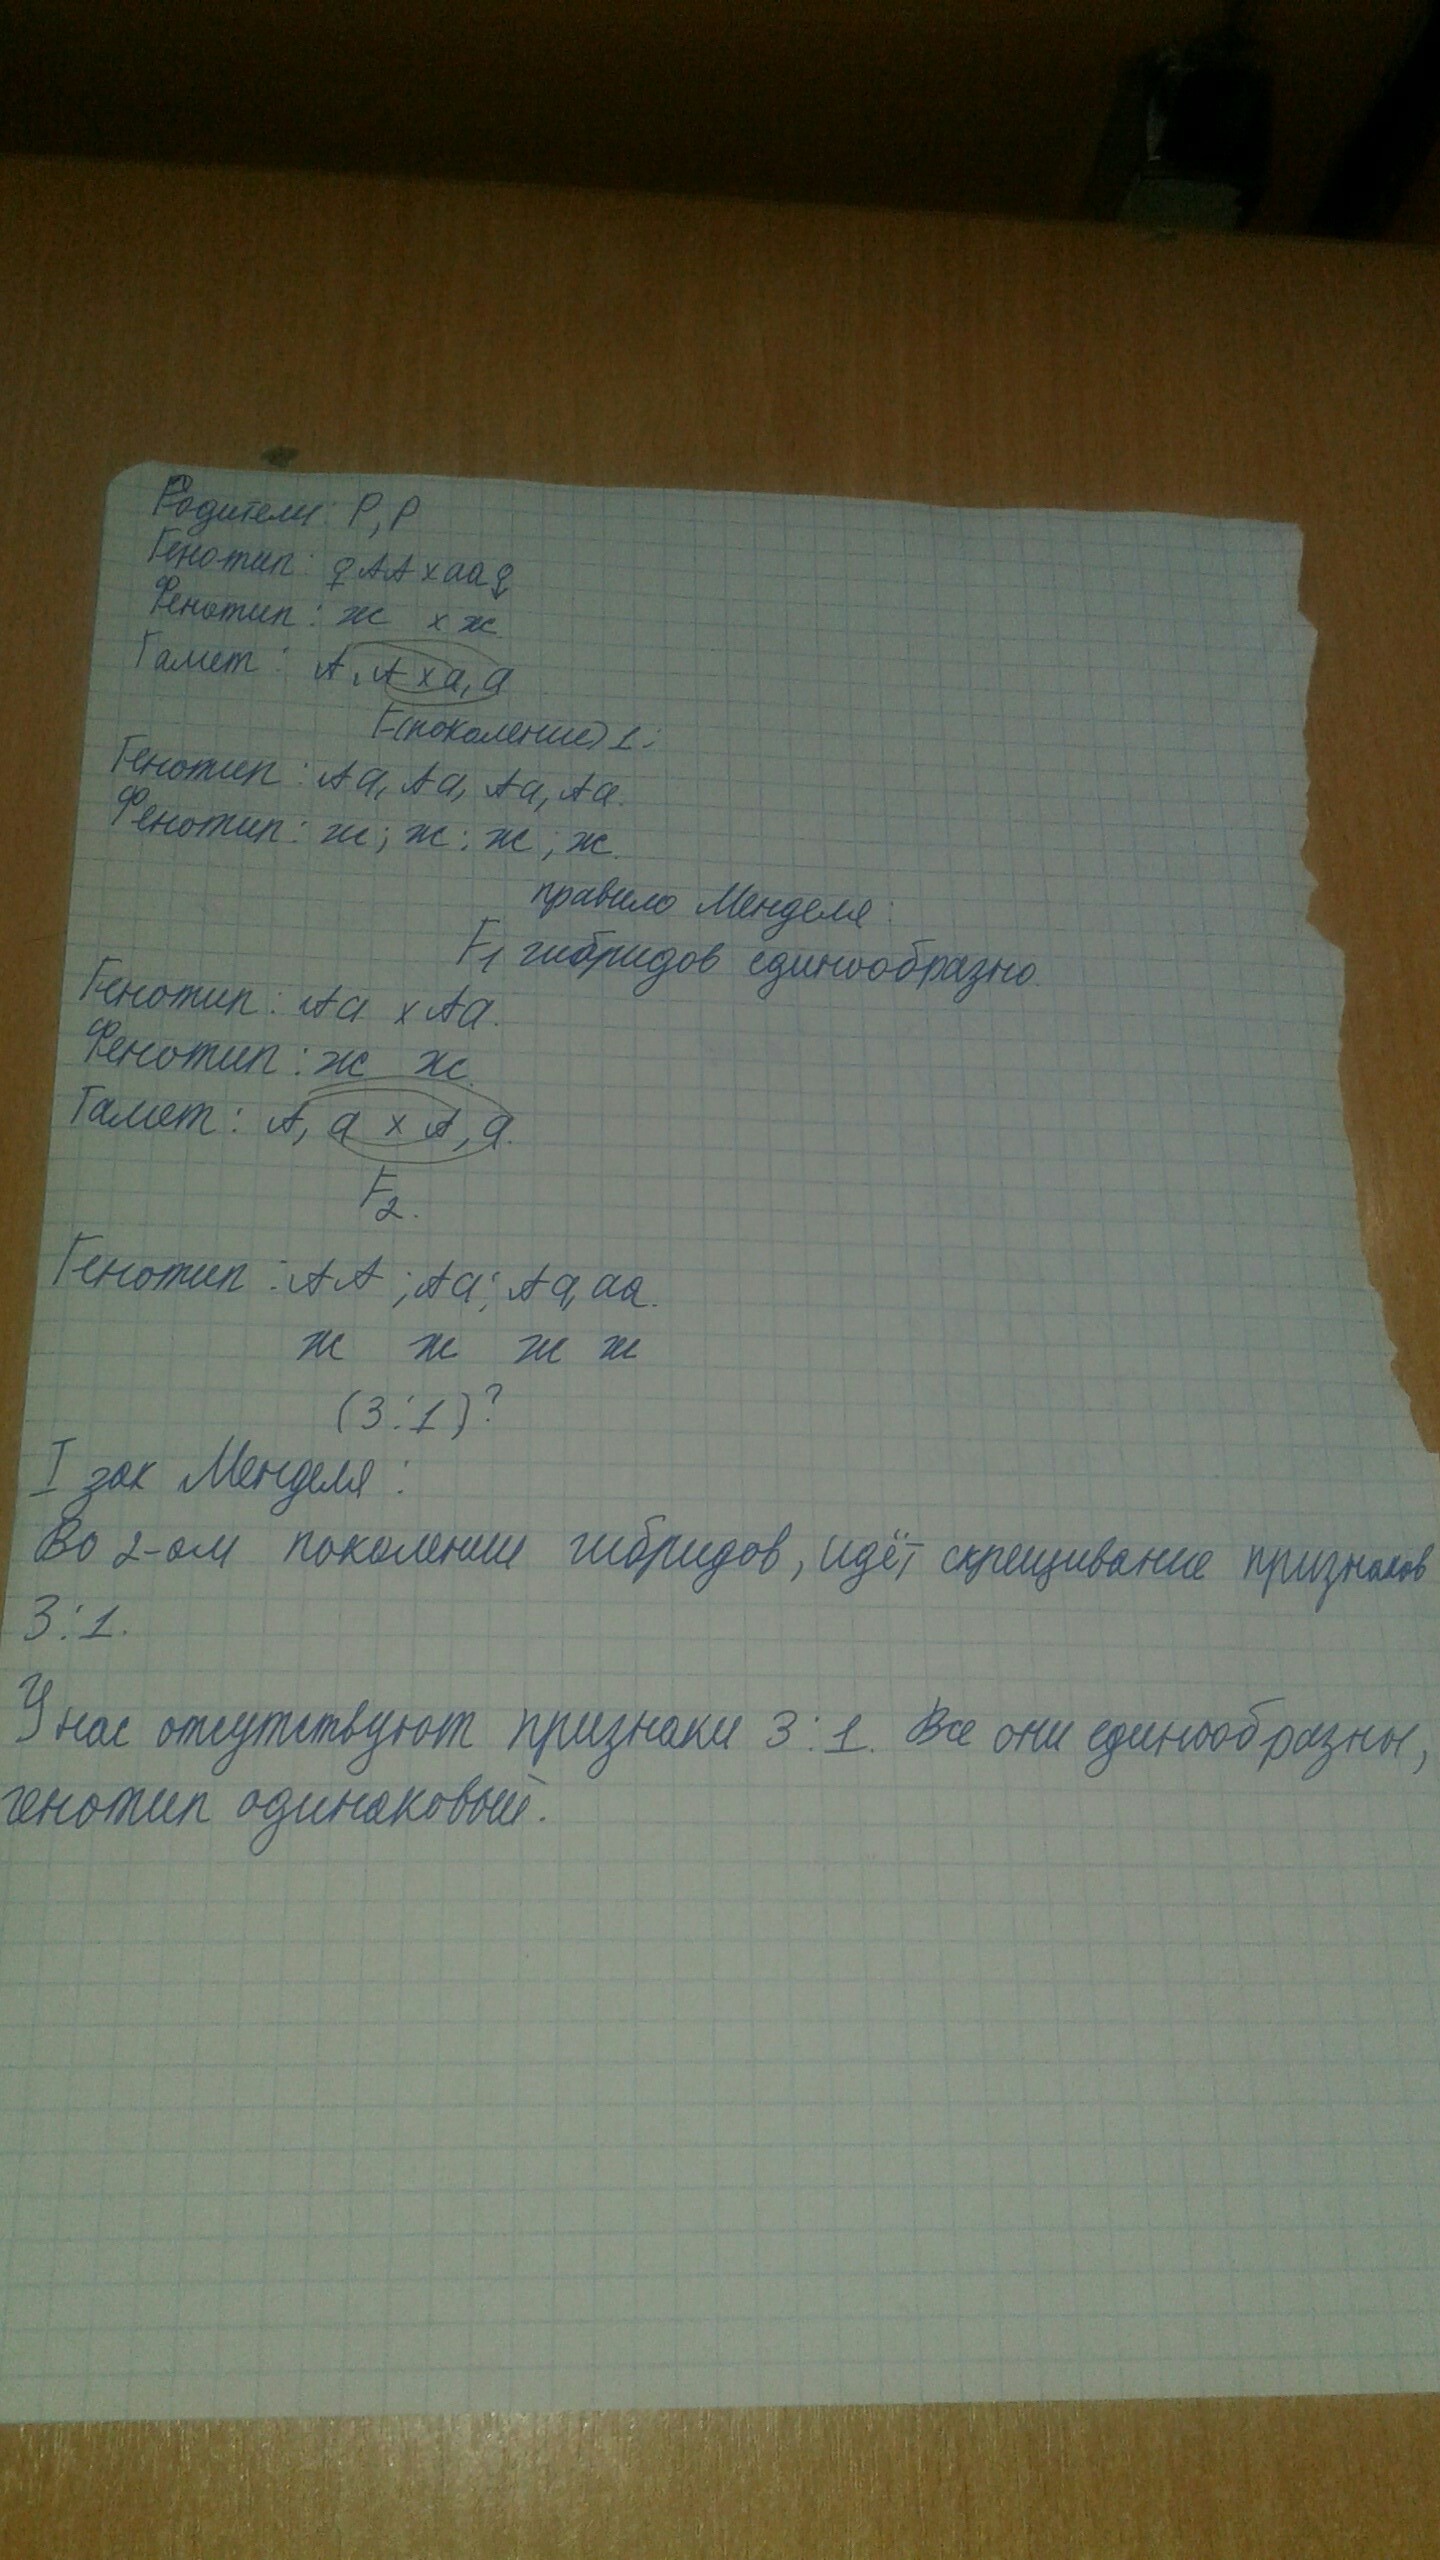 Родители: Р, Р
Генотип: ♀ АА х аа ♀
Фенотип: ж х ж
Гамет: А, А х а, а
F(поколение) 1:
Генотип: Аа, Аа, Аа, Аа.
Фенотип: ж; ж; ж; ж.
правило Менделя:
F1 гибридов единообразно.
Генотип: Аа х Аа.
Фенотип: ж ж.
Гамет: А, а х А, а.
F2.
Генотип: АА; Аа; Аа, аа.
ж ж ж ж
(3:1)?
I зак Менделя:
Во 2-ом поколении гибридов, идёт скрещивание признаков
3:1.
У нас отсутствуют признаки 3:1. Все они единообразны,
генотип одинаковый.